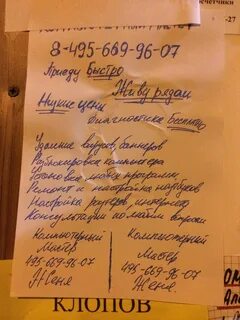 8-495-669-96-07
Приеду Быстро
Живу рядом
Низкие цены
Диагностика Бесплатно
Удаление вирусов, баннеров
Разблокировка компьютера
Установка любых программ
Ремонт и настройка ноутбуков
Настройка роутеров, интернета
Консультации по любым вопросам
Компьютерный
Мастер
495-669-96-07
Женя
Компьютерный
Мастер
495-669-96-07
Женя.
КЛОПОВ